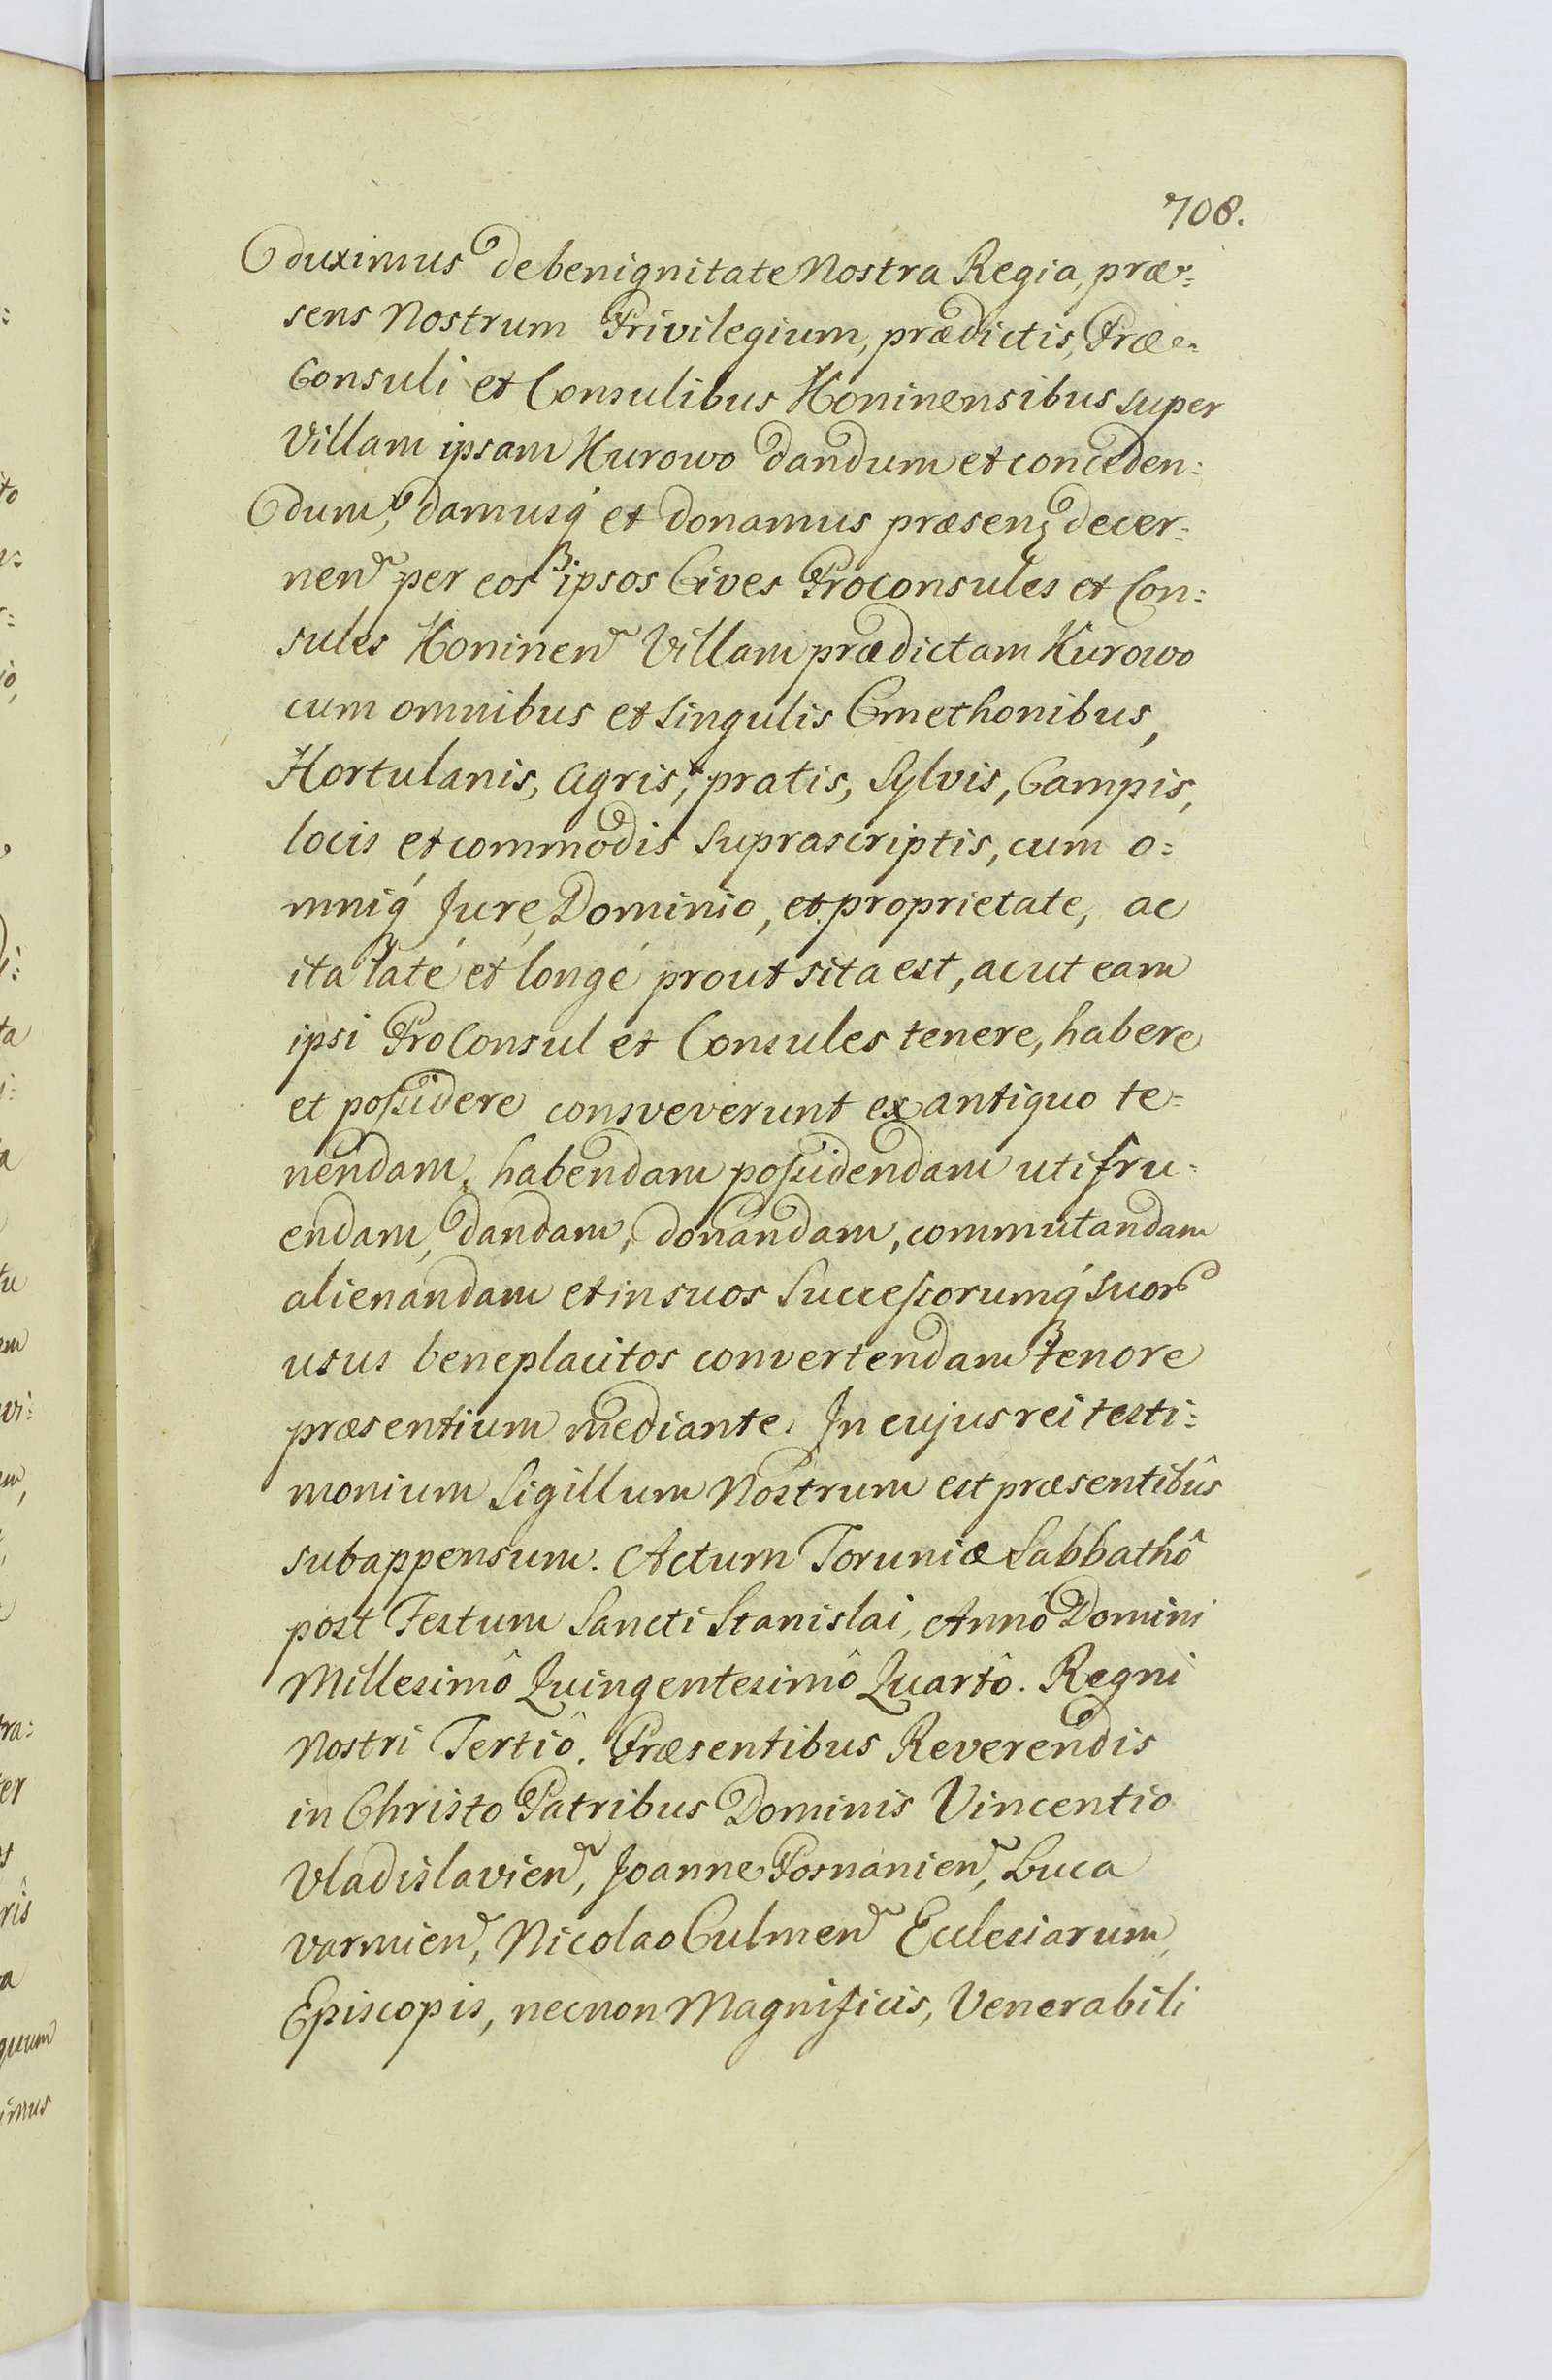 708.
duximus de benignitate Nostra Regia, præ=
sens Nostrum Privilegium, prædictis, Præ=
Consuli et Consulibus Koninensibus super
Villam ipsam Kurowo dandum et conceden:
dum, damusq́ et donamus præsen decer:
nen per eos ipsos Cives Proconsules et Con:
sules Koninen Villam prædictam Kurowo
cum omnibus et singulis Cmethonibus,
Hortulanis, Agris, pratis, Sylvis, Campis,
locis et commodis suprascriptis, cum o=
mniq́ Jure, Dominio, et proprietate, ac
ita laté et longé prout sita est, ac ut eam
ipsi ProConsul et Consules tenere, habere
et possidere consveverunt ex antiquo te=
nendam, habendam possidendam utifru=
endam, dandam, donandam, commutandam
alienandam et in suos Successorumq́ suor
usus beneplacitos convertendam tenore
præsentium mediante. In cujus rei testi=
monium Sigillum Nostrum est præsentibûs
subappensum. Actum Toruniæ Sabbathô
post Festum Sancti Stanislai, Annô Domini
Millesimô Quingentesimô Quartô. Regni
Nostri Tertiô. Præsentibus Reverendis
in Christo Patribus Dominis Vincentio
Vladislavien, Joanne Posnanien, Luca
Varmien, Nicolao Culmen Ecclesiarum
Episcopis, necnon Magnificis, Venerabili